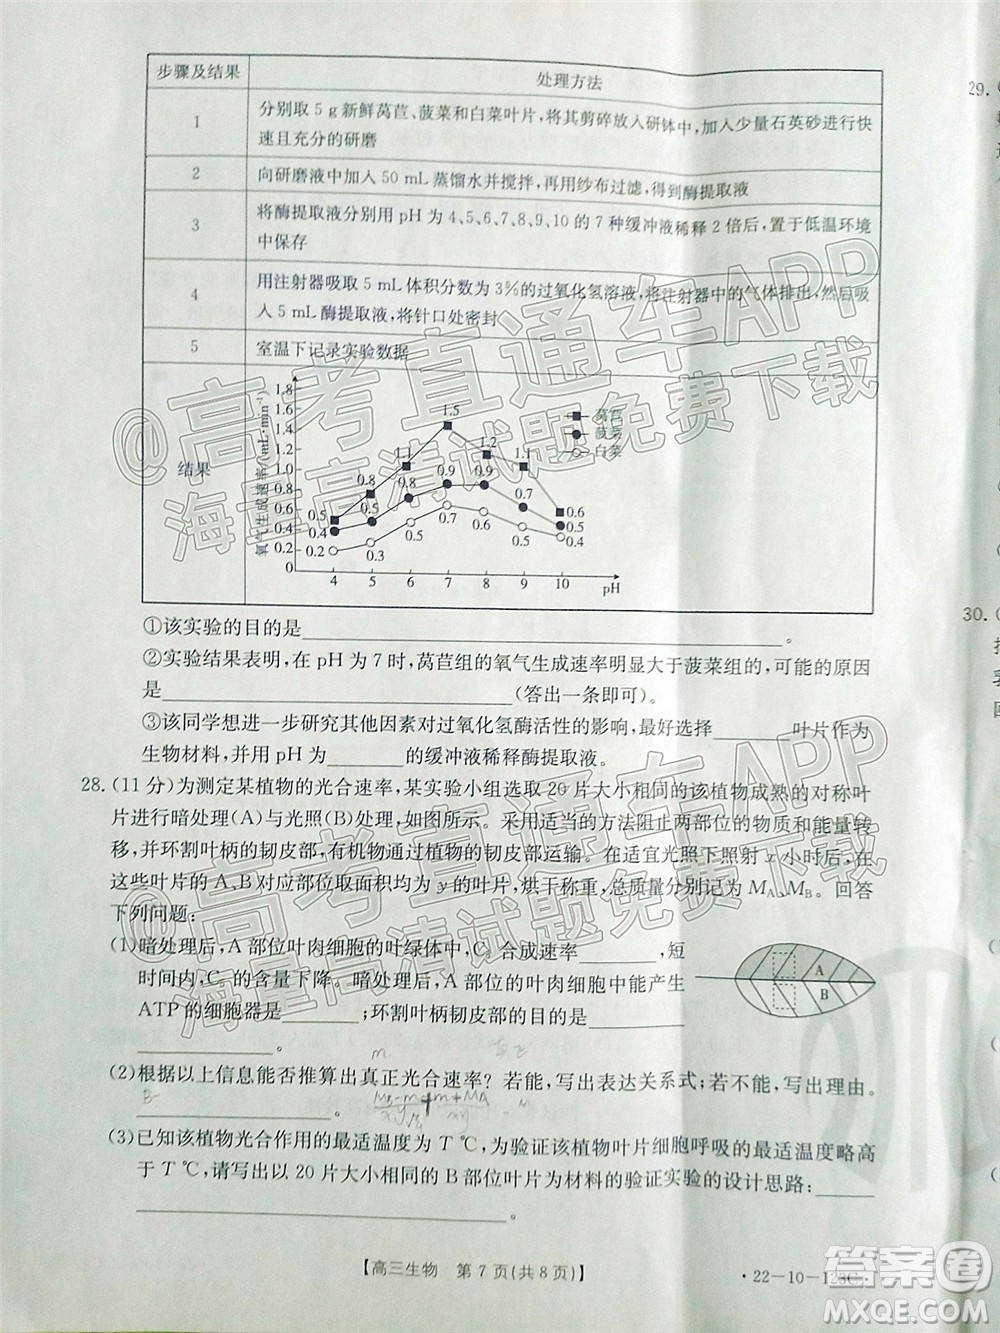 步骤及结果 处理方法
1 分别取 5 g 新鲜莴苣、菠菜和白菜叶片,将其剪碎放入研钵中,加入少量石英砂进行快
速且充分的研磨
2 向研磨液中加入 50 mL 蒸馏水并搅拌,再用纱布过滤,得到酶提取液
3 将酶提取液分别用 pH 为 4、5、6、7、8、9、10 的 7 种缓冲液稀释 2 倍后,置于低温环境
中保存
4 用注射器吸取 5 mL 体积分数为 3%的过氧化氢溶液,将注射器中的气体排出,然后吸
入 5 mL 酶提取液,将针口处密封
5 室温下记录实验数据
结果
氧气生成速率/(mL·min⁻¹)
1.8
1.6
1.4
1.2
1.0
0.8
0.6
0.4
0.2
0
4 5 6 7 8 9 10 pH
莴苣
菠菜
白菜
0.5 0.8 1.1 1.5 1.2 1.1 0.6
0.4 0.5 0.8 0.9 0.9 0.7 0.5
0.2 0.3 0.5 0.7 0.6 0.5 0.4
①该实验的目的是 。
②实验结果表明,在 pH 为 7 时,莴苣组的氧气生成速率明显大于菠菜组的,可能的原因
是 (答出一条即可)。
③该同学想进一步研究其他因素对过氧化氢酶活性的影响,最好选择 叶片作为
生物材料,并用 pH 为 的缓冲液稀释酶提取液。
28. (11 分)为测定某植物的光合速率,某实验小组选取 20 片大小相同的该植物成熟的对称叶
片进行暗处理(A)与光照(B)处理,如图所示。采用适当的方法阻止两部位的物质和能量转
移,并环割叶柄的韧皮部,有机物通过植物的韧皮部运输。在适宜光照下照射 x 小时后,在
这些叶片的 A、B 对应部位取面积均为 y 的叶片,烘干称重,总质量分别记为 MA、MB。回答
下列问题:
(1)暗处理后,A 部位叶肉细胞的叶绿体中,C₃ 合成速率 ,短
时间内,C₅ 的含量下降。暗处理后,A 部位的叶肉细胞中能产生
ATP 的细胞器有 ;环割叶柄韧皮部的目的是
。
A
B
(2)根据以上信息能否推算出真正光合速率?若能,写出表达关系式;若不能,写出理由。
。
(3)已知该植物光合作用的最适温度为 T ℃,为验证该植物叶片细胞呼吸的最适温度略高
于 T ℃,请写出以 20 片大小相同的 B 部位叶片为材料的验证实验的设计思路:
。
【高三生物 第 7 页(共 8 页)】
·22-10-123C·
29.
30.
@高考直通车APP
海量高清试题免费下载
@高考直通车APP
海量高清试题免费下载
答案圈
MXQE.COM